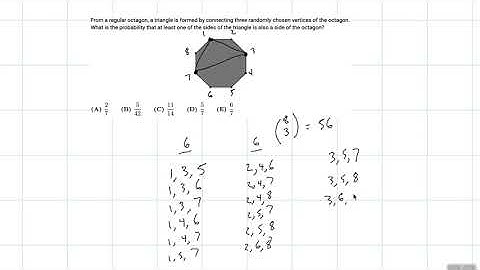 From a regular octagon, a triangle is formed by connecting three randomly chosen vertices of the octagon.
What is the probability that at least one of the sides of the triangle is also a side of the octagon?
1 2
8 3
7 4
6 5
(A) 2/7 (B) 5/42 (C) 11/14 (D) 5/7 (E) 6/7
(8 3) = 56
6
1, 3, 5
1, 3, 6
1, 3, 7
1, 4, 6
1, 4, 7
1, 5, 7
6
2, 4, 6
2, 4, 7
2, 4, 8
2, 5, 7
2, 5, 8
2, 6, 8
3, 5, 7
3, 5, 8
3, 6,